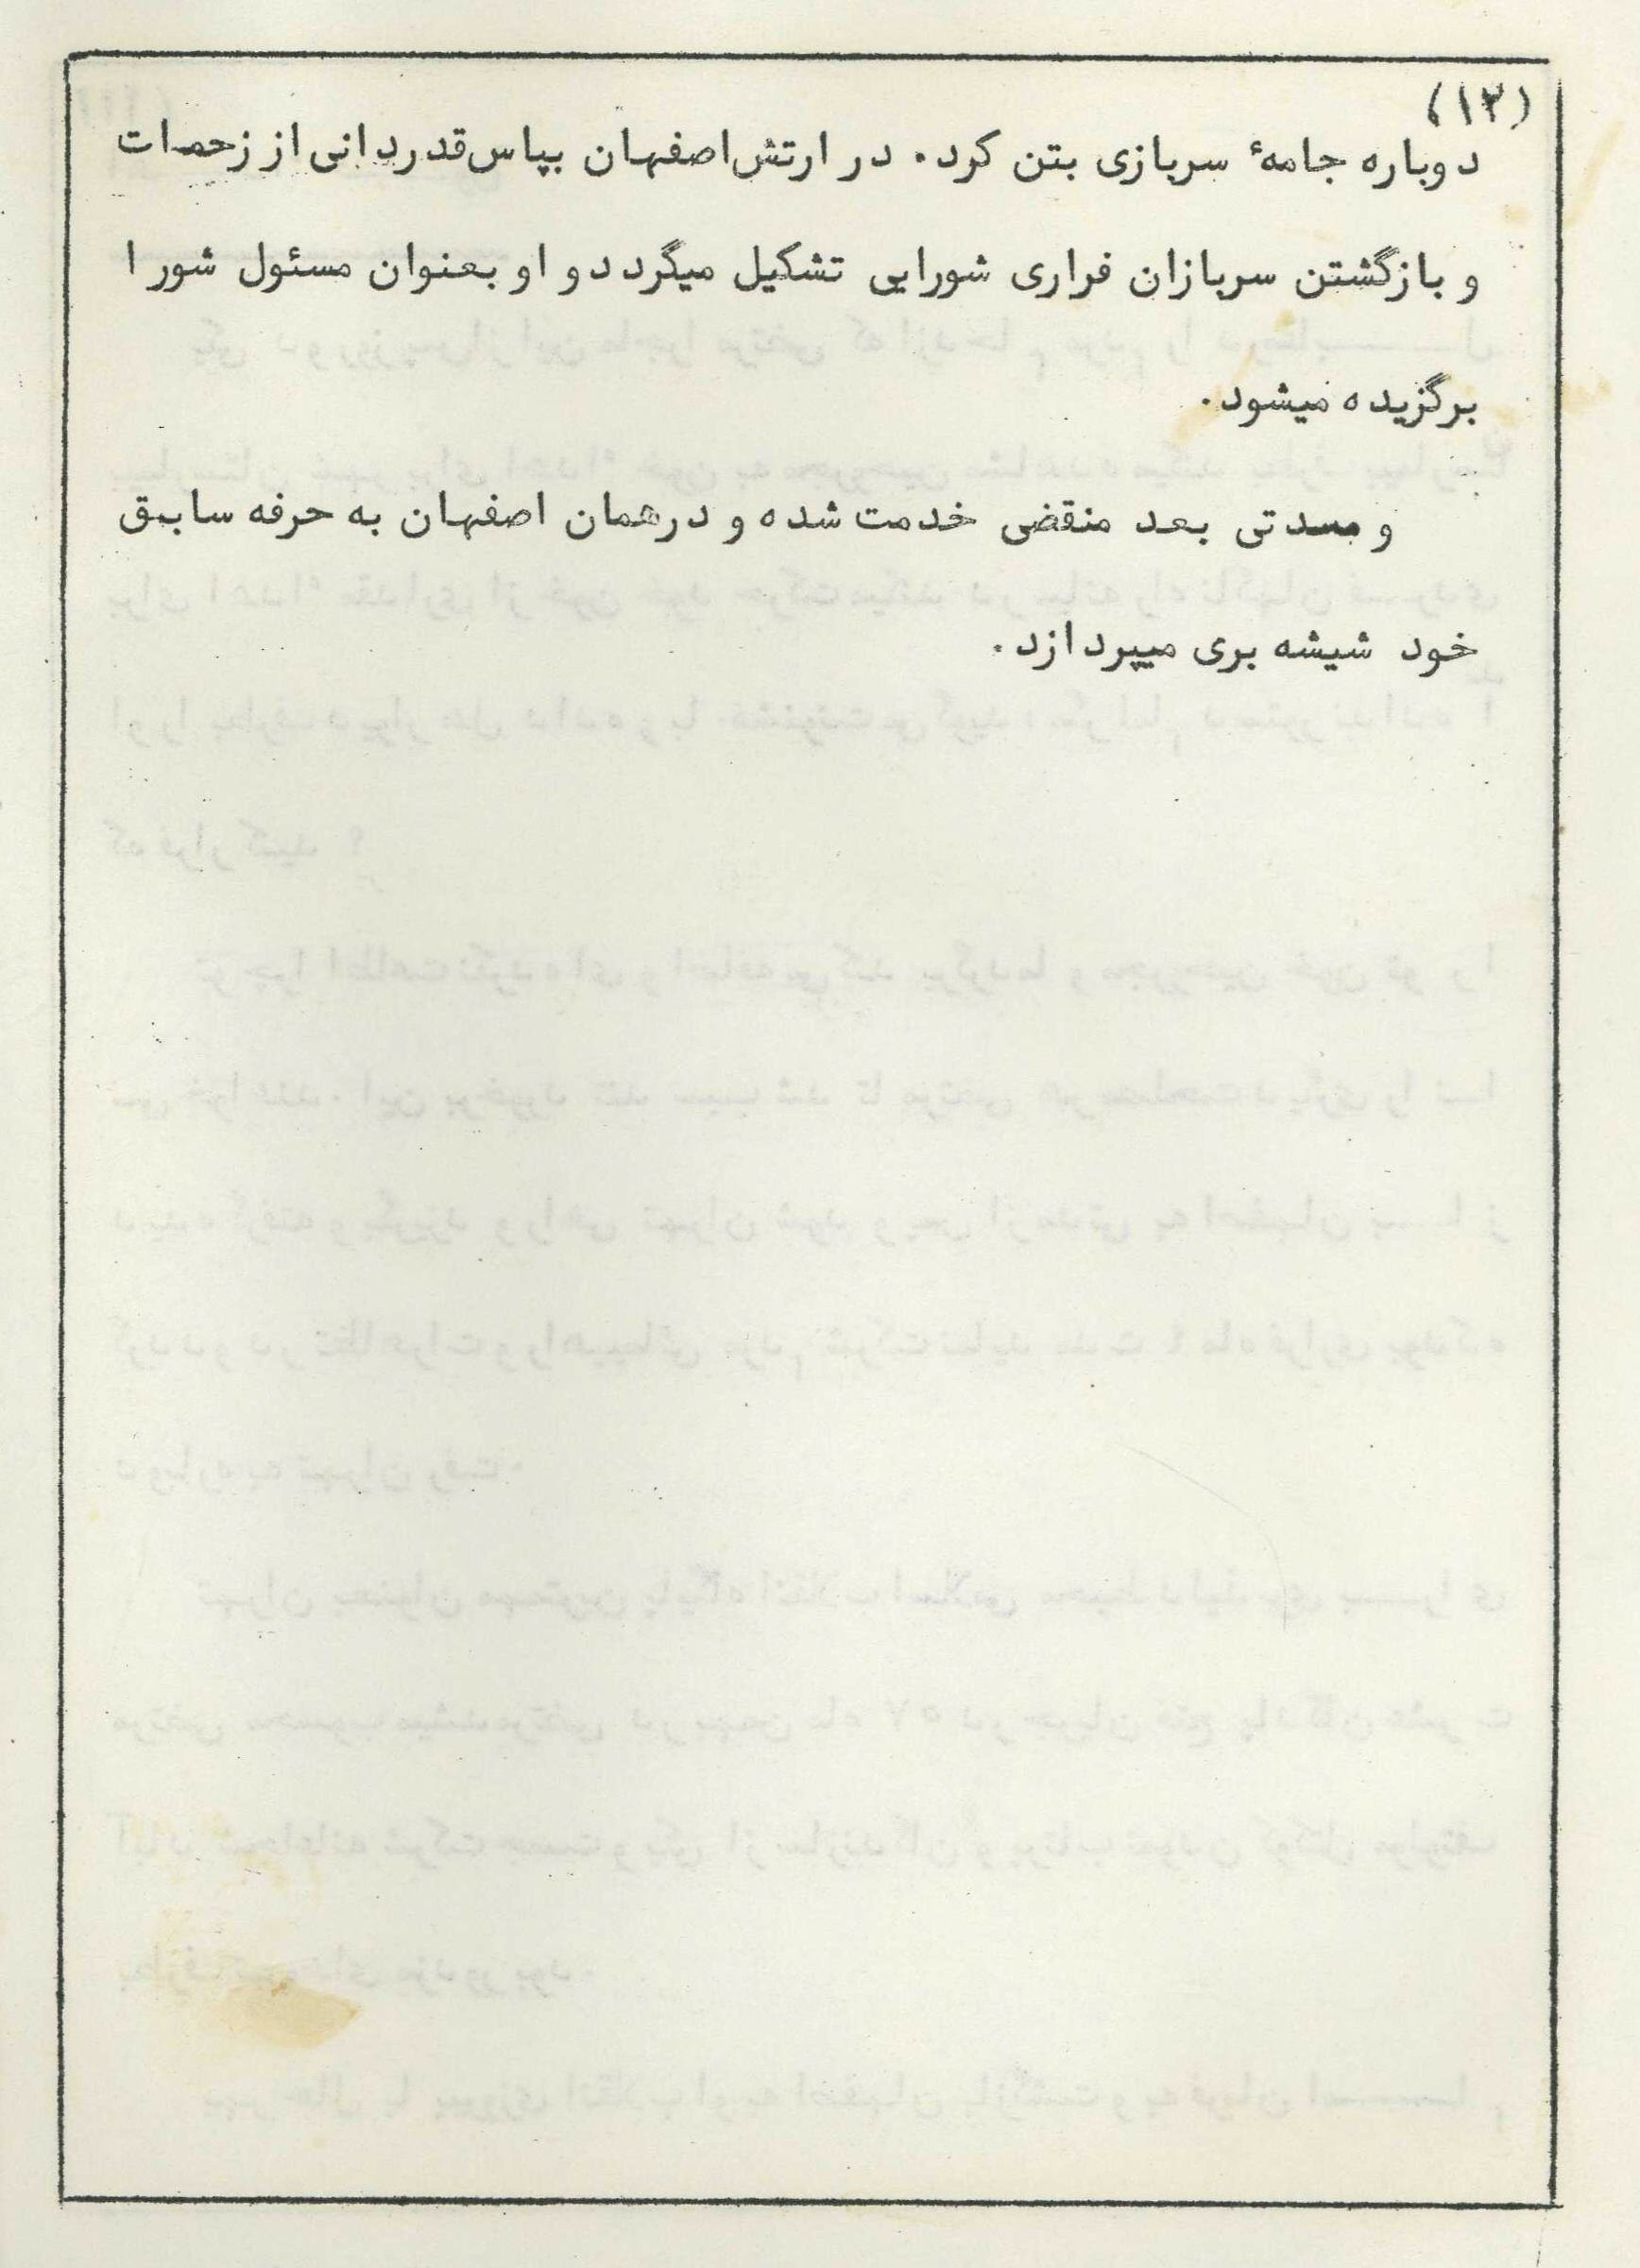 (۱۲)
دوباره جامهٔ سربازی بتن کرد. در ارتش اصفهان بپاس قدردانی از زحمات
و بازگشتن سربازان فراری شورایی تشکیل میگردد و او بعنوان مسئول شورا
برگزیده میشود.
و مدتی بعد منقضی خدمت شده و درهمان اصفهان به حرفه سابق
خود شیشه بری میپردازد.